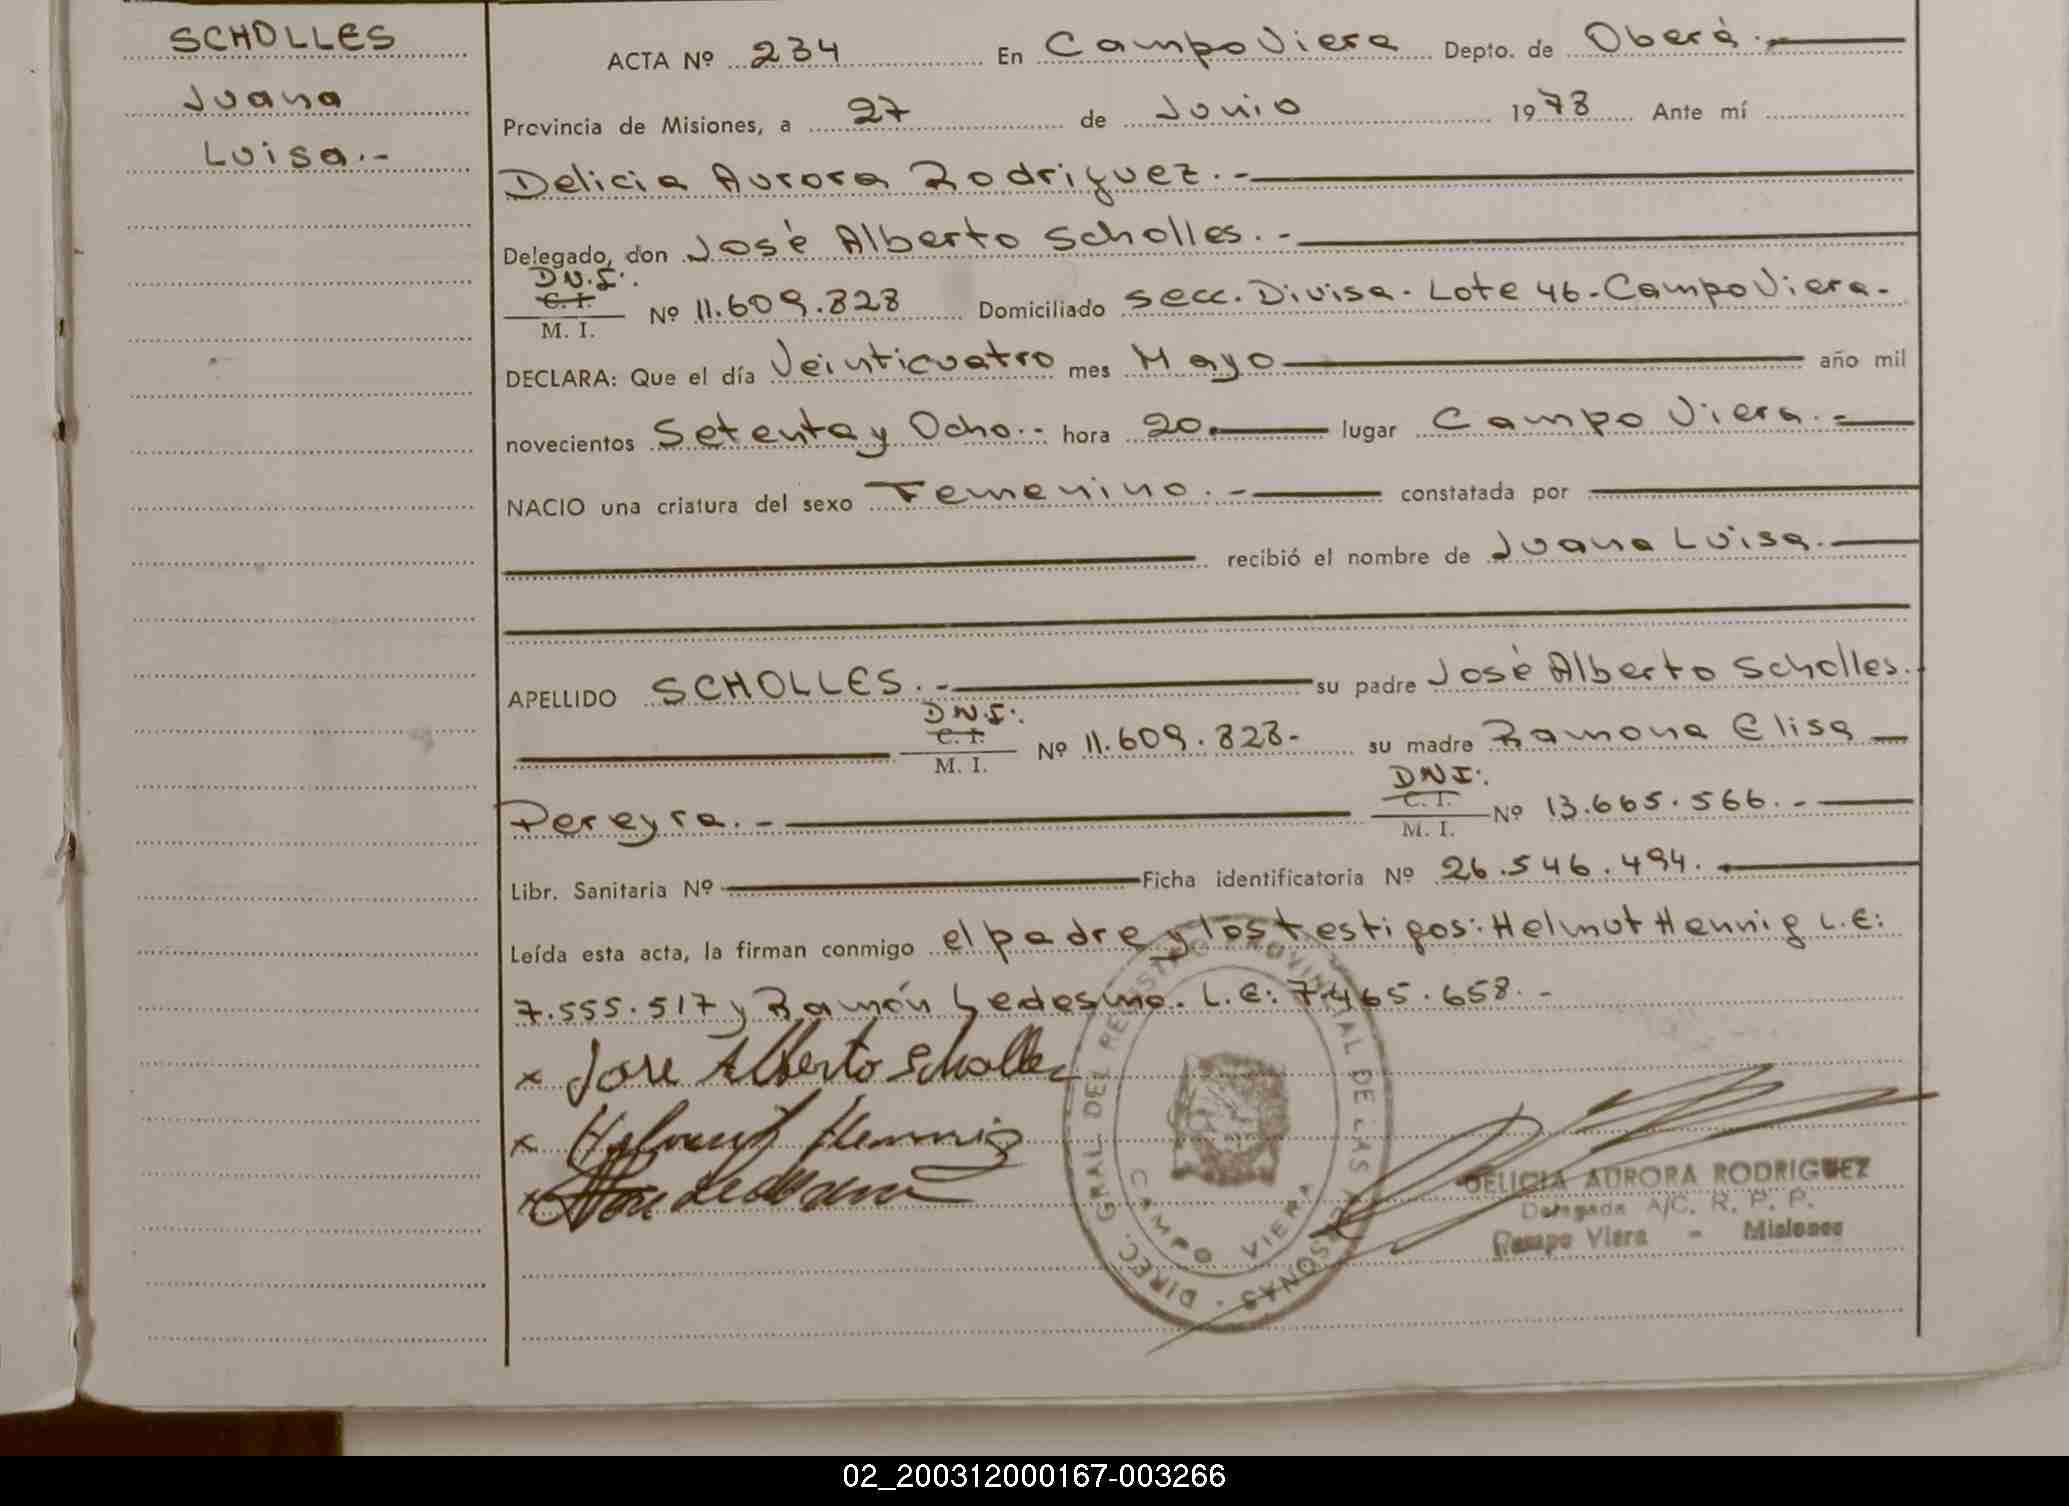 SCHOLLES
Juana
Luisa.-
ACTA Nº 234 En Campo Viera Depto. de Oberá.-
Provincia de Misiones, a 27 de Junio 1978 Ante mí
Delicia Aurora Rodriguez.-
Delegado, don José Alberto Scholles.-
D.N.I.
C. I.
M. I. Nº 11.609.828 Domiciliado Secc. Divisa - Lote 46 - Campo Viera -
DECLARA: Que el día Veinticuatro mes Mayo año mil
novecientos Setenta y Ocho.- hora 20. lugar Campo Viera.-
NACIO una criatura del sexo Femenino.- constatada por
recibió el nombre de Juana Luisa.
APELLIDO SCHOLLES.- su padre José Alberto Scholles.
D.N.I.
C. I.
M. I. Nº 11.609.828- su madre Ramona Elisa
Pereyra.- DNI.
C. I.
M. I. Nº 13.665.566.-
Libr. Sanitaria Nº Ficha identificatoria Nº 26.546.494.
Leída esta acta, la firman conmigo el padre y los testigos: Helmut Hennig L.E:
7.555.517 y Ramón Ledesma. L.E: 7.465.658.-
x Jose Alberto Scholles
x Helmut Hennig
x Ledesma
DIREC. GRAL DEL REGISTRO PROVINCIAL DE LAS PERSONAS
CAMPO VIERA
DELICIA AURORA RODRIGUEZ
Delegada A/C. R. P. P.
Campo Viera - Misiones
02_200312000167-003266